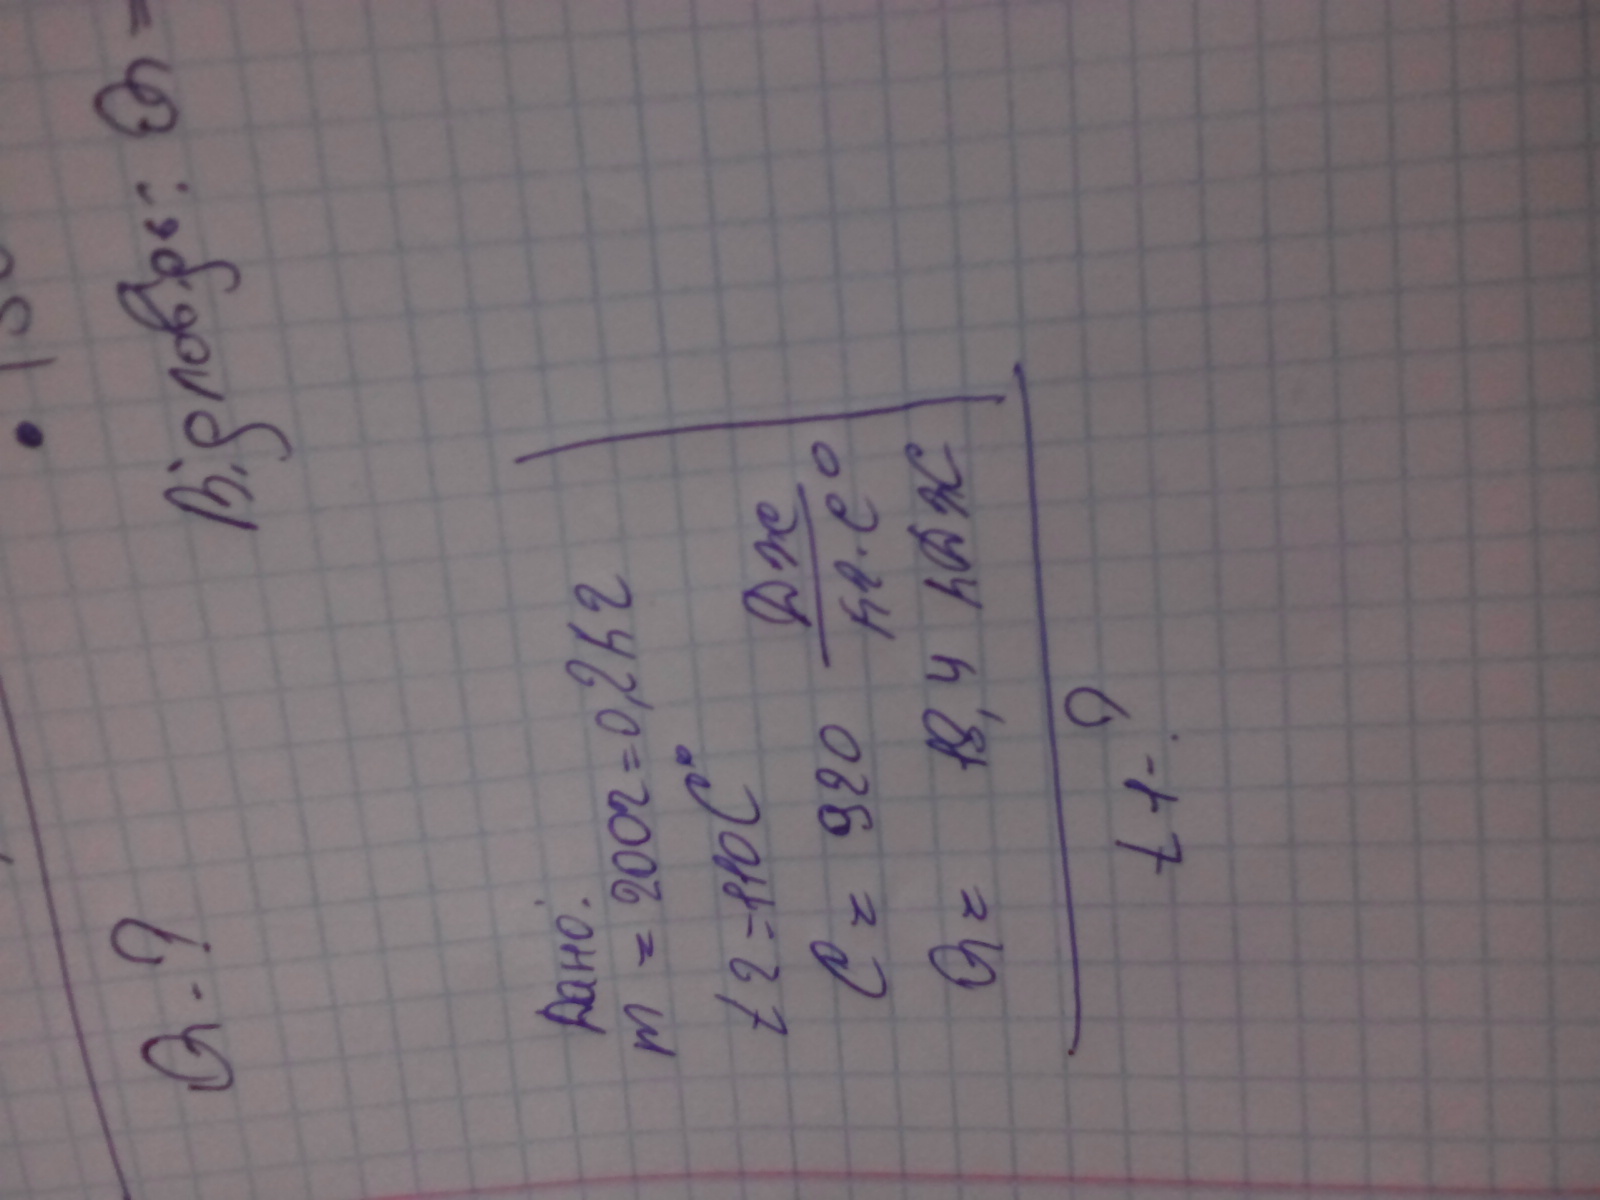 Q-?
Відповідь: Q =
Дано:
m = 200г = 0,2 кг
t2 = 110 C°
C = 920 Дж
кг·C°
Q = 18,4 кДж
t1-?